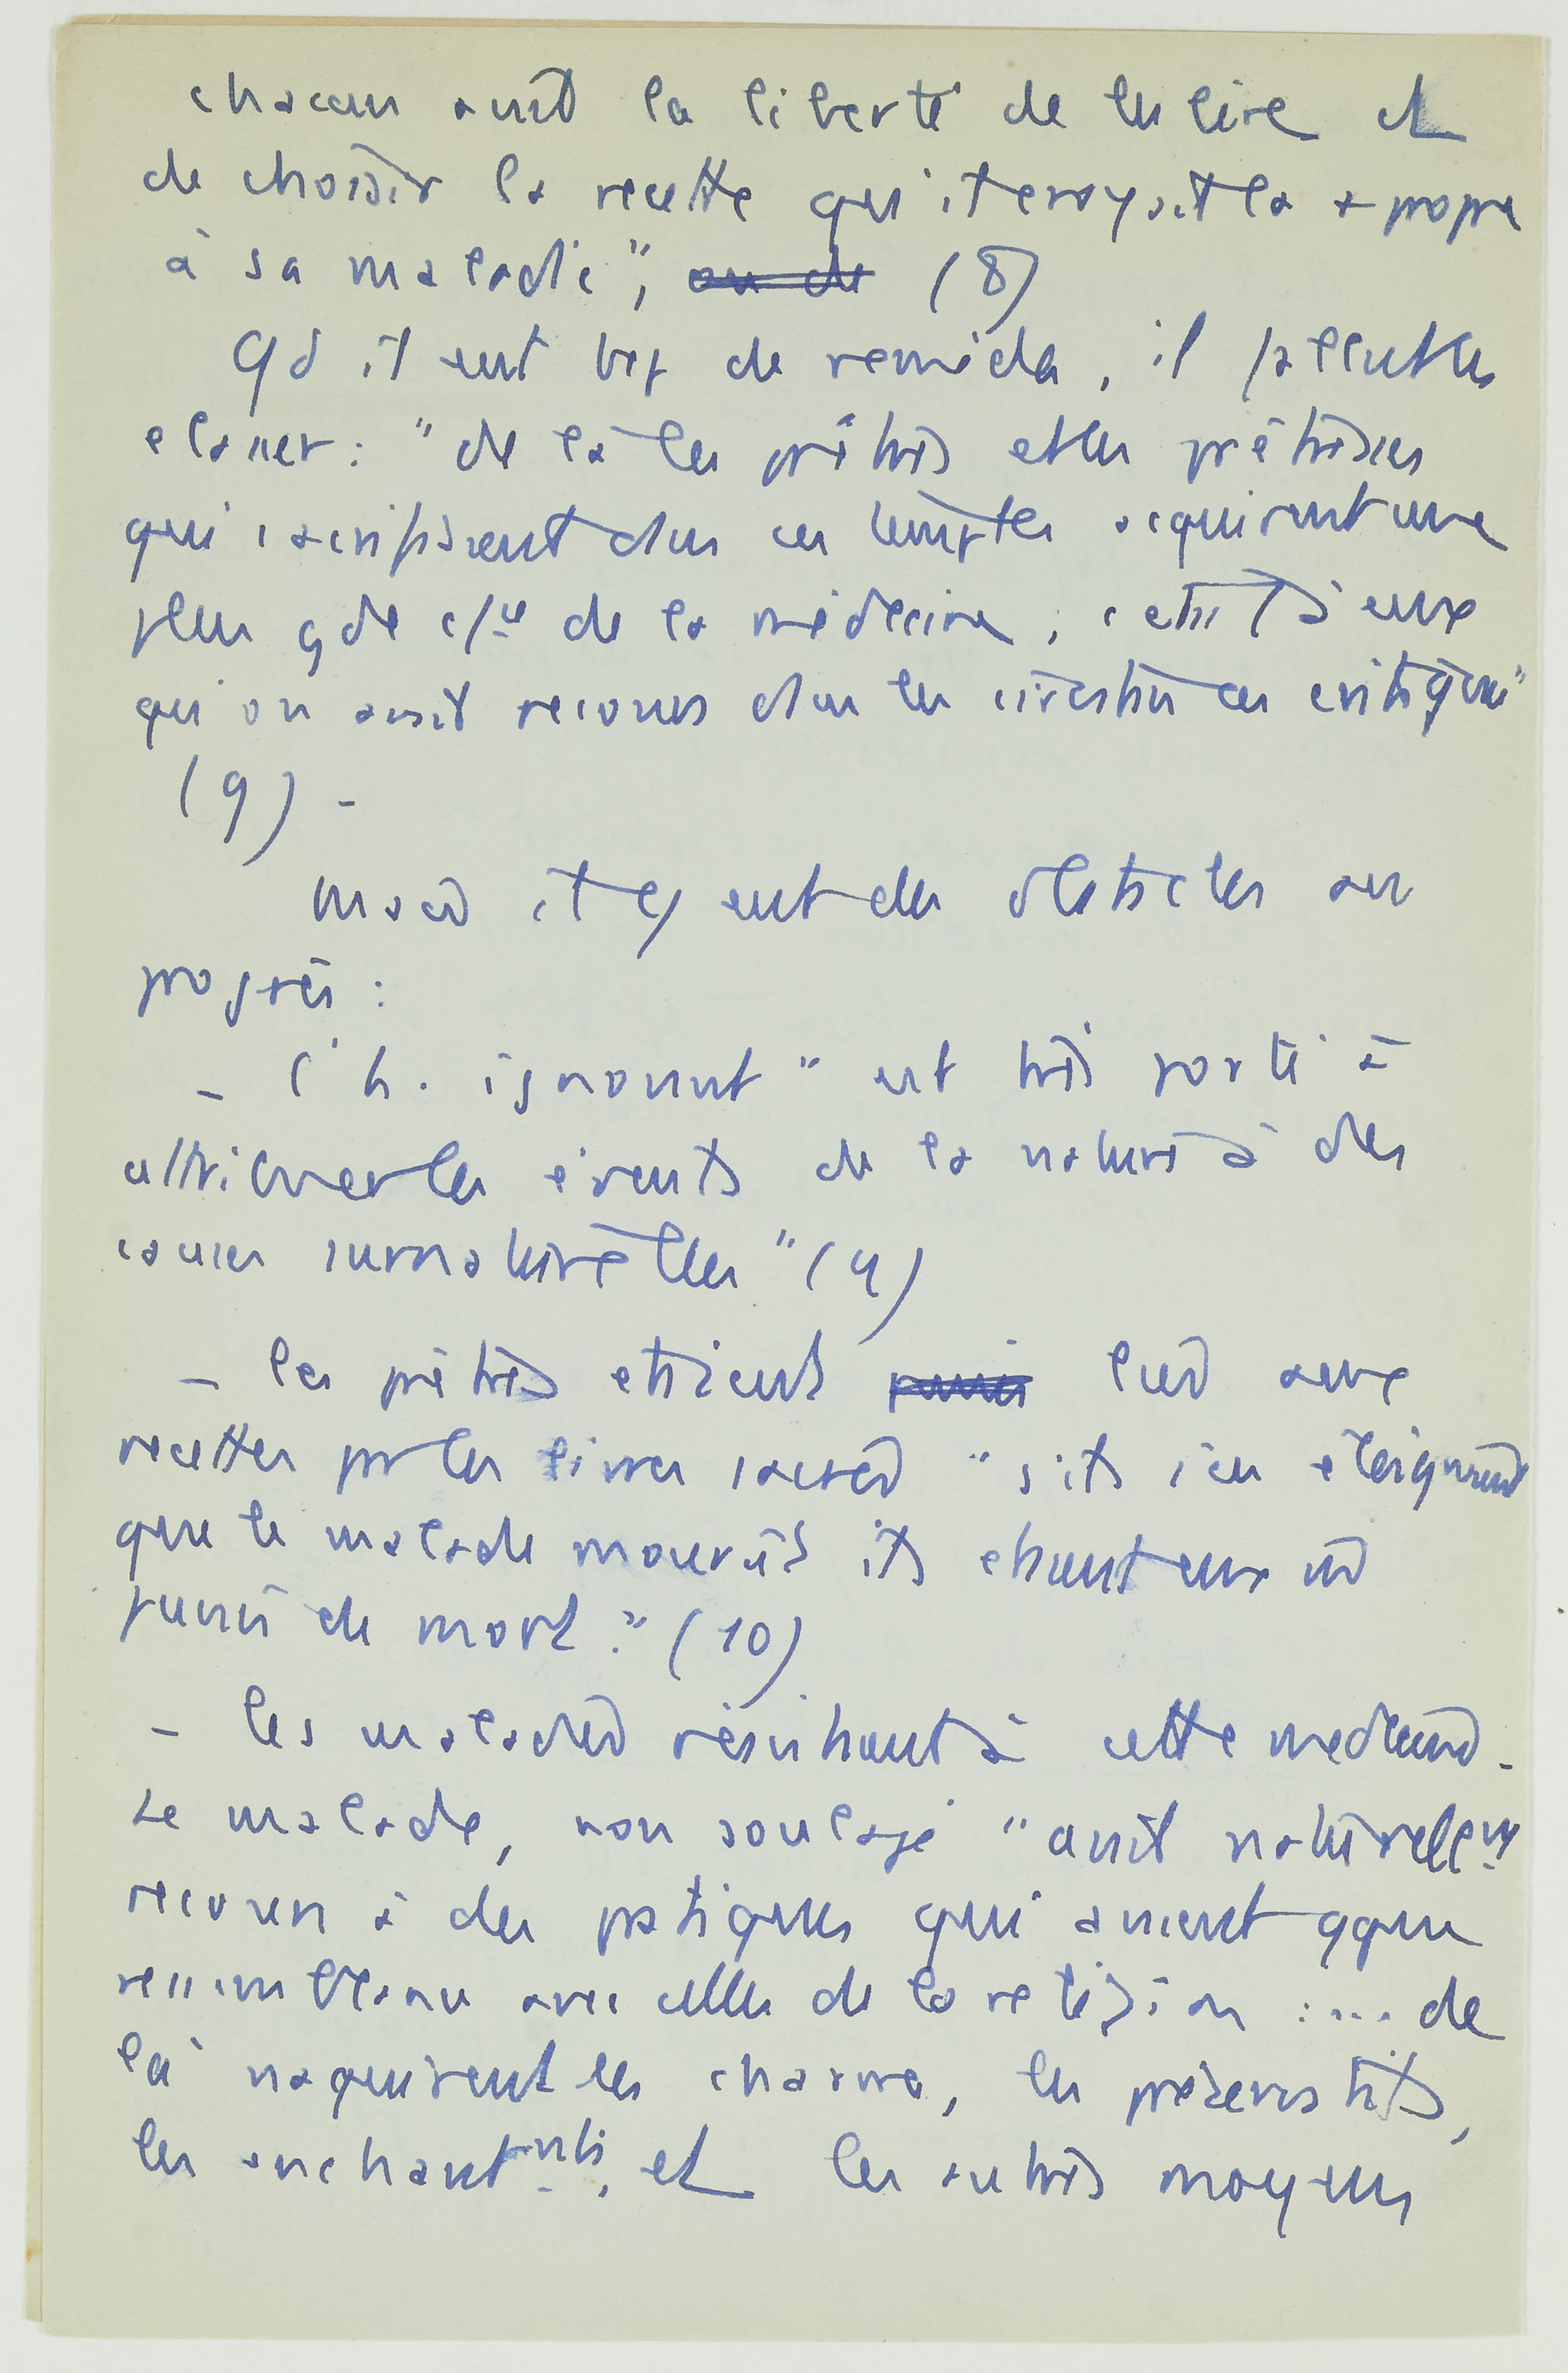 chacun avait la liberté de les lire et
de choisir la recette qu'il croyait la + propre
à sa maladie", ou de (8)
Qd il y eut bcp de remèdes, il fallut les
classer : "de là les prêtres et les prêtresses
qui sacrifiaient dans ces temples acquirent une
plus gde de la médecine ; c'était à eux
qu'on avait recours dans les circonstances critiques"
(9) -
Mais il y eut des obstacles au
progrès :
- l'h. ignorant "est très porté à
attribuer les évents de la nature à des
causes surnaturelles" (4)
- les prêtres étaient punis liés aux
recettes par les livres sacrés "s'ils s'en éloignaient
que le malade mourait ils étaient eux
punis de mort." (10)
- les maladies résistant à cette médecine.
Le malade, non soulagé "avait naturellemt
recours à des pratiques qui avaient qque
ressemblance avec celles de la religion :... de
là naquirent les charmes, les préservatifs,
les enchantmts, et les autres moyens